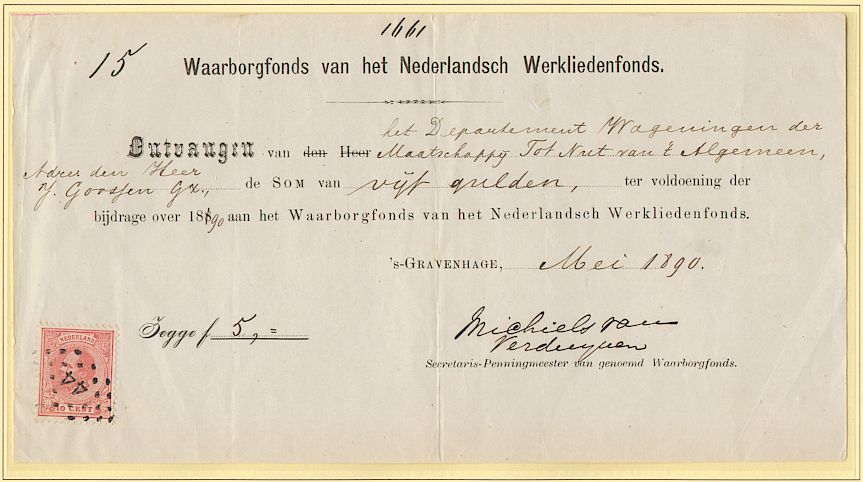 1661
15
Waarborgfonds van het Nederlandsch Werkliedenfonds.
het Departement Wageningen der
Ontvangen van den Heer Maatschappij Tot Nut van 't Algemeen,
Adres den Heer
J. Goossen Gz., de Som van vijf gulden, ter voldoening der
bijdrage over 1890 aan het Waarborgfonds van het Nederlandsch Werkliedenfonds.
's-Gravenhage, Mei 1890.
Zegge f 5,=
Michiels van
Verduynen
Secretaris-Penningmeester van genoemd Waarborgfonds.
NEDERLAND
44
10 CENT